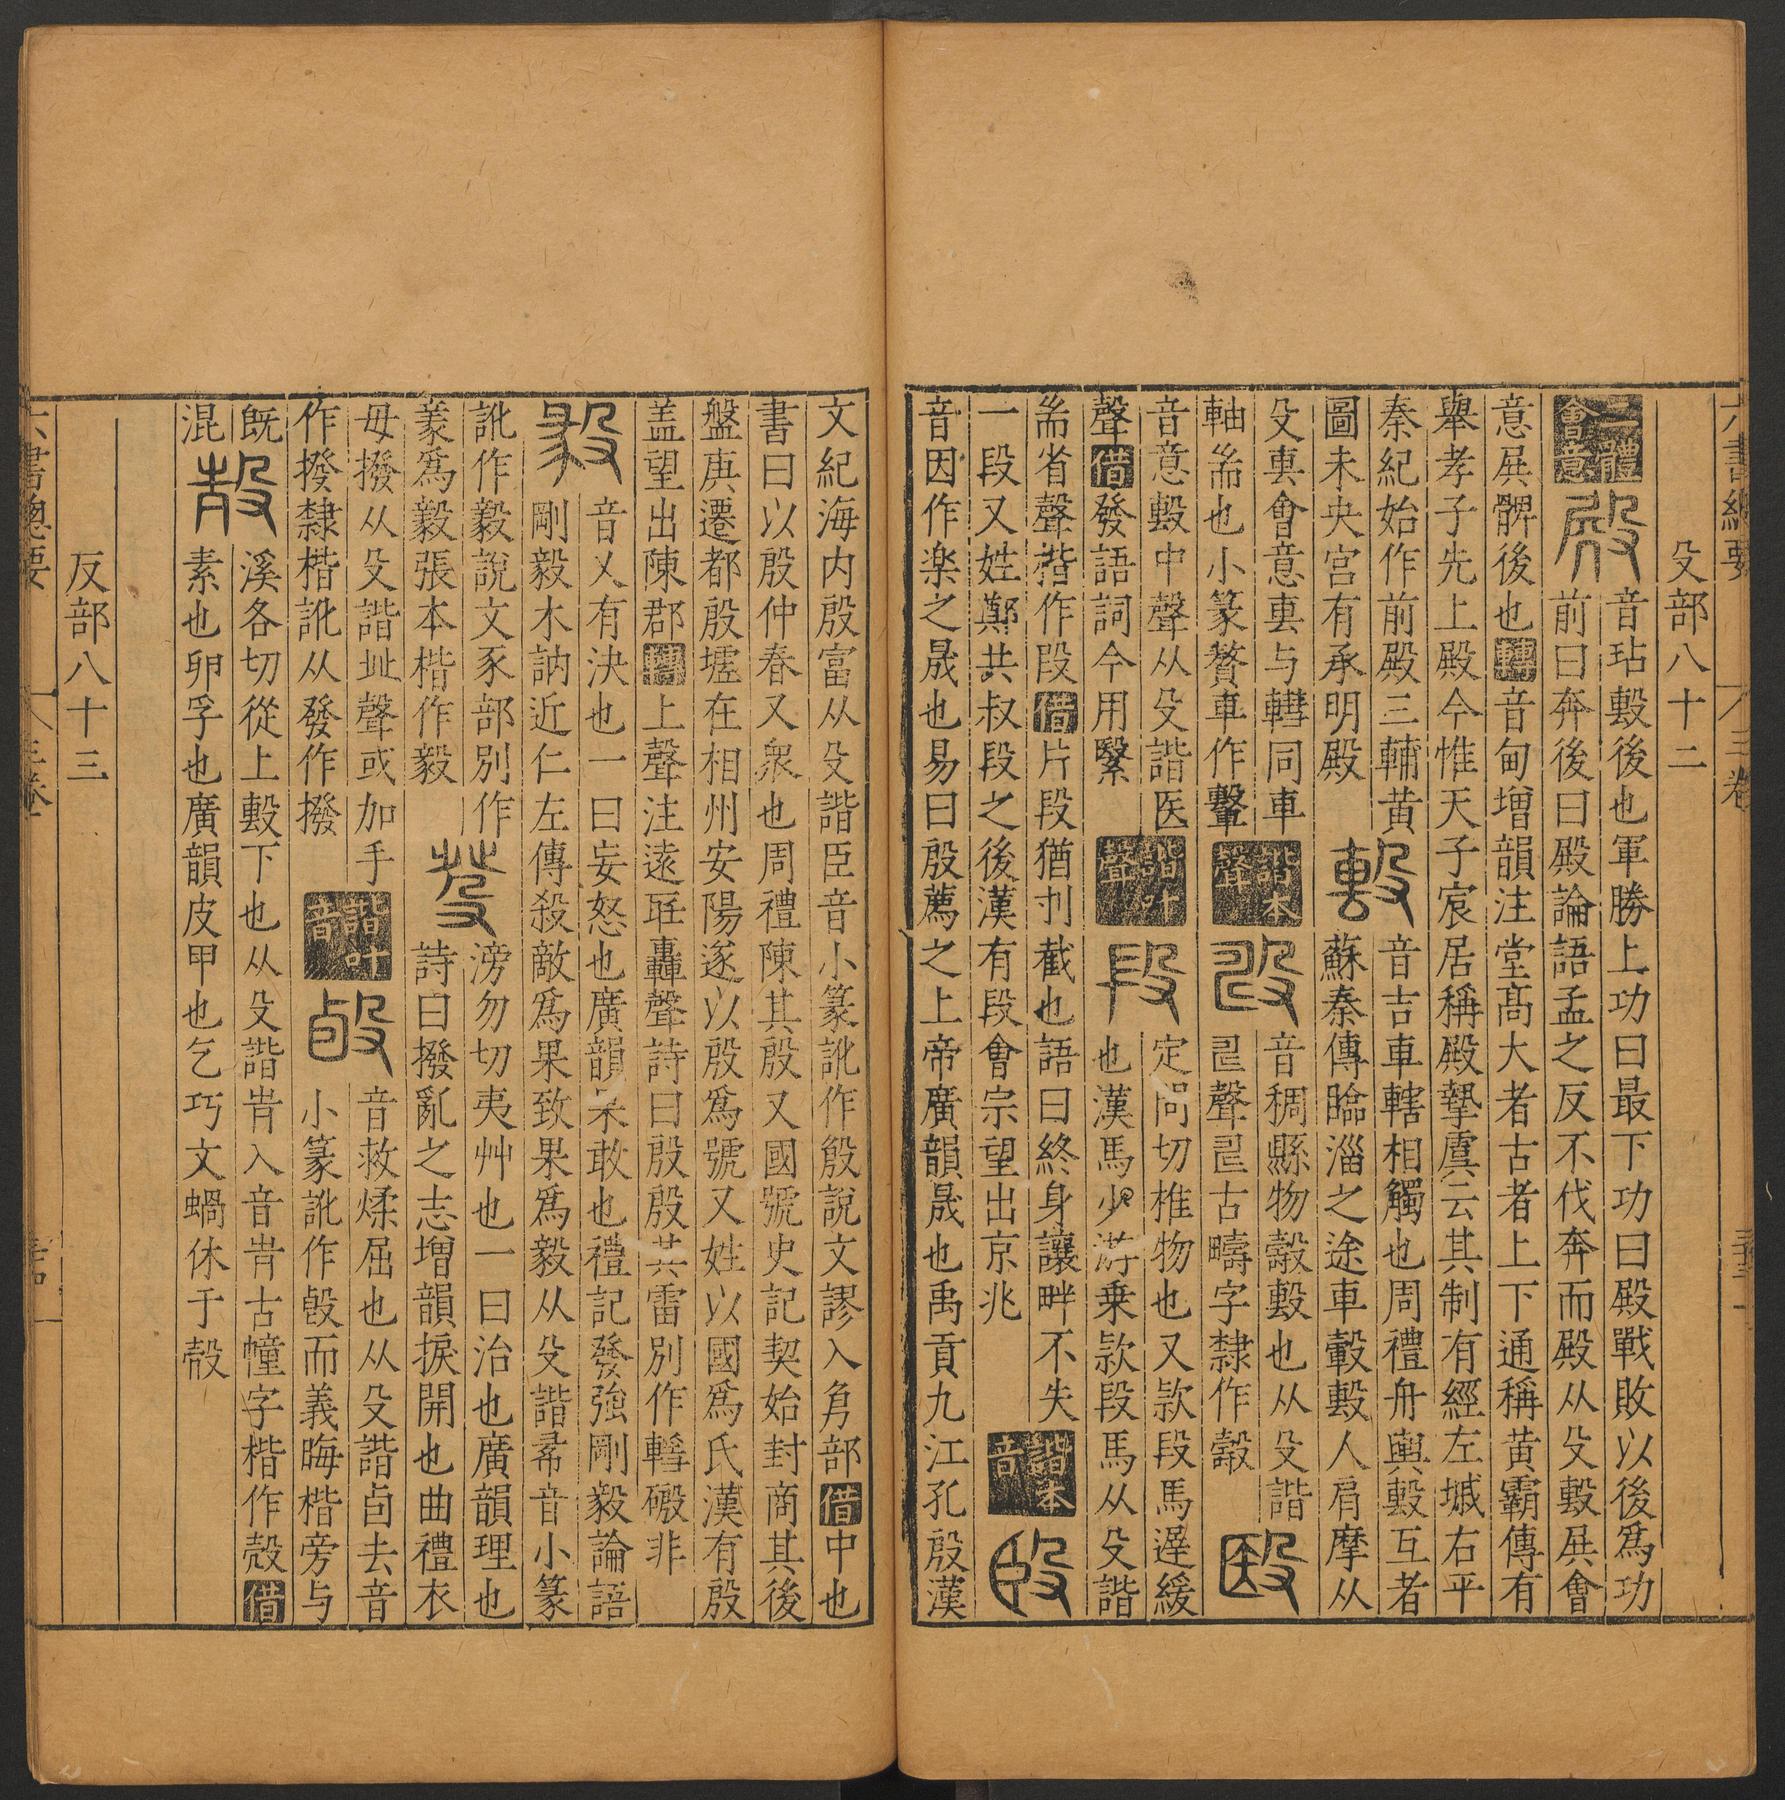 六書總要 三卷
殳部八十二
二體會意 殿 音玷毄後也軍勝上功曰最下功曰殿戰敗以後爲功
前曰奔後曰殿論語孟之反不伐奔而殿从殳毄㞟會
意㞟髀後也轉音甸增韻注堂高大者古者上下通稱黄霸傳有
舉孝子先上殿今惟天子宸居稱殿摯虞云其制有經左墄右平
秦紀始作前殿三輔黄
圖未央宮有承明殿
毄 音吉車轄相觸也周禮舟輿毄互者
蘇秦傳臨淄之途車轂毄人肩摩从
殳軎會意軎与轊同車
軸耑也小篆贅車作轚
諧本聲
音稠縣物㲄毄也从殳諧
𠃬聲𠃬古疇字隸作㲄
殹 音意毄中聲从殳諧医
聲借發語詞今用繄
諧叶聲 段 定問切椎物也又款段馬遅緩
也漢馬少游乗款段馬从殳諧
耑省聲楷作段借片段猶刌截也語曰終身讓畔不失
一段又姓鄭共叔段之後漢有段會宗望出京兆
諧本音 殷
音因作楽之晟也易曰殷薦之上帝廣韻晟也禹貢九江孔殷漢
文紀海内殷富从殳諧臣音小篆訛作殷說文謬入㐆部借中也
書曰以殷仲春又衆也周禮陳其殷又國號史記契始封商其後
盤庚遷都殷墟在相州安陽遂以殷爲號又姓以國爲氏漢有殷
盖望出陳郡轉上聲注逺㽵轟聲詩曰殷殷其雷別作轊磤非
毅 音乂有決也一曰妄怒也廣韻果敢也禮記發強剛毅論語
剛毅木訥近仁左傳殺敵爲果致果爲毅从殳諧㣇音小篆
訛作毅說文豕部別作
篆爲毅張本楷作毅
癹 滂勿切夷艸也一曰治也廣韻理也
詩曰撥亂之志增韻捩開也曲禮衣
毋撥从殳諧癶聲或加手
作撥隸楷訛从發作撥
諧叶音 㲃 音救煣屈也从殳諧𠧪去音
小篆訛作㲃而義晦楷旁与
既
混
㱿 溪各切從上毄下也从殳諧𡴘入音𡴘古幢字楷作殼借
素也卵孚也廣韻皮甲也乞巧文蝸休于殼
反部八十三
六書總要 三卷